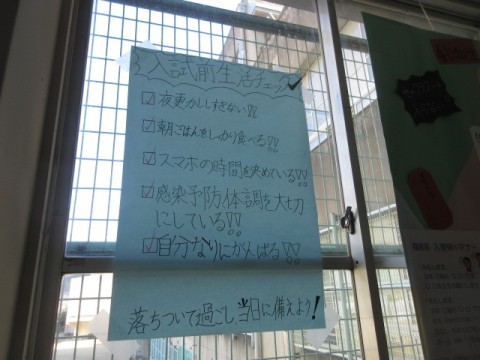 入試前生活チェック✓
☑夜更かししすぎない!!
☑朝ごはんをしっかり食べる!!
☑スマホの時間を決めている!!
☑感染予防、体調を大切
にしている!!
☑自分なりにがんばる!!
落ちついて過ごし、当日に備えよう!